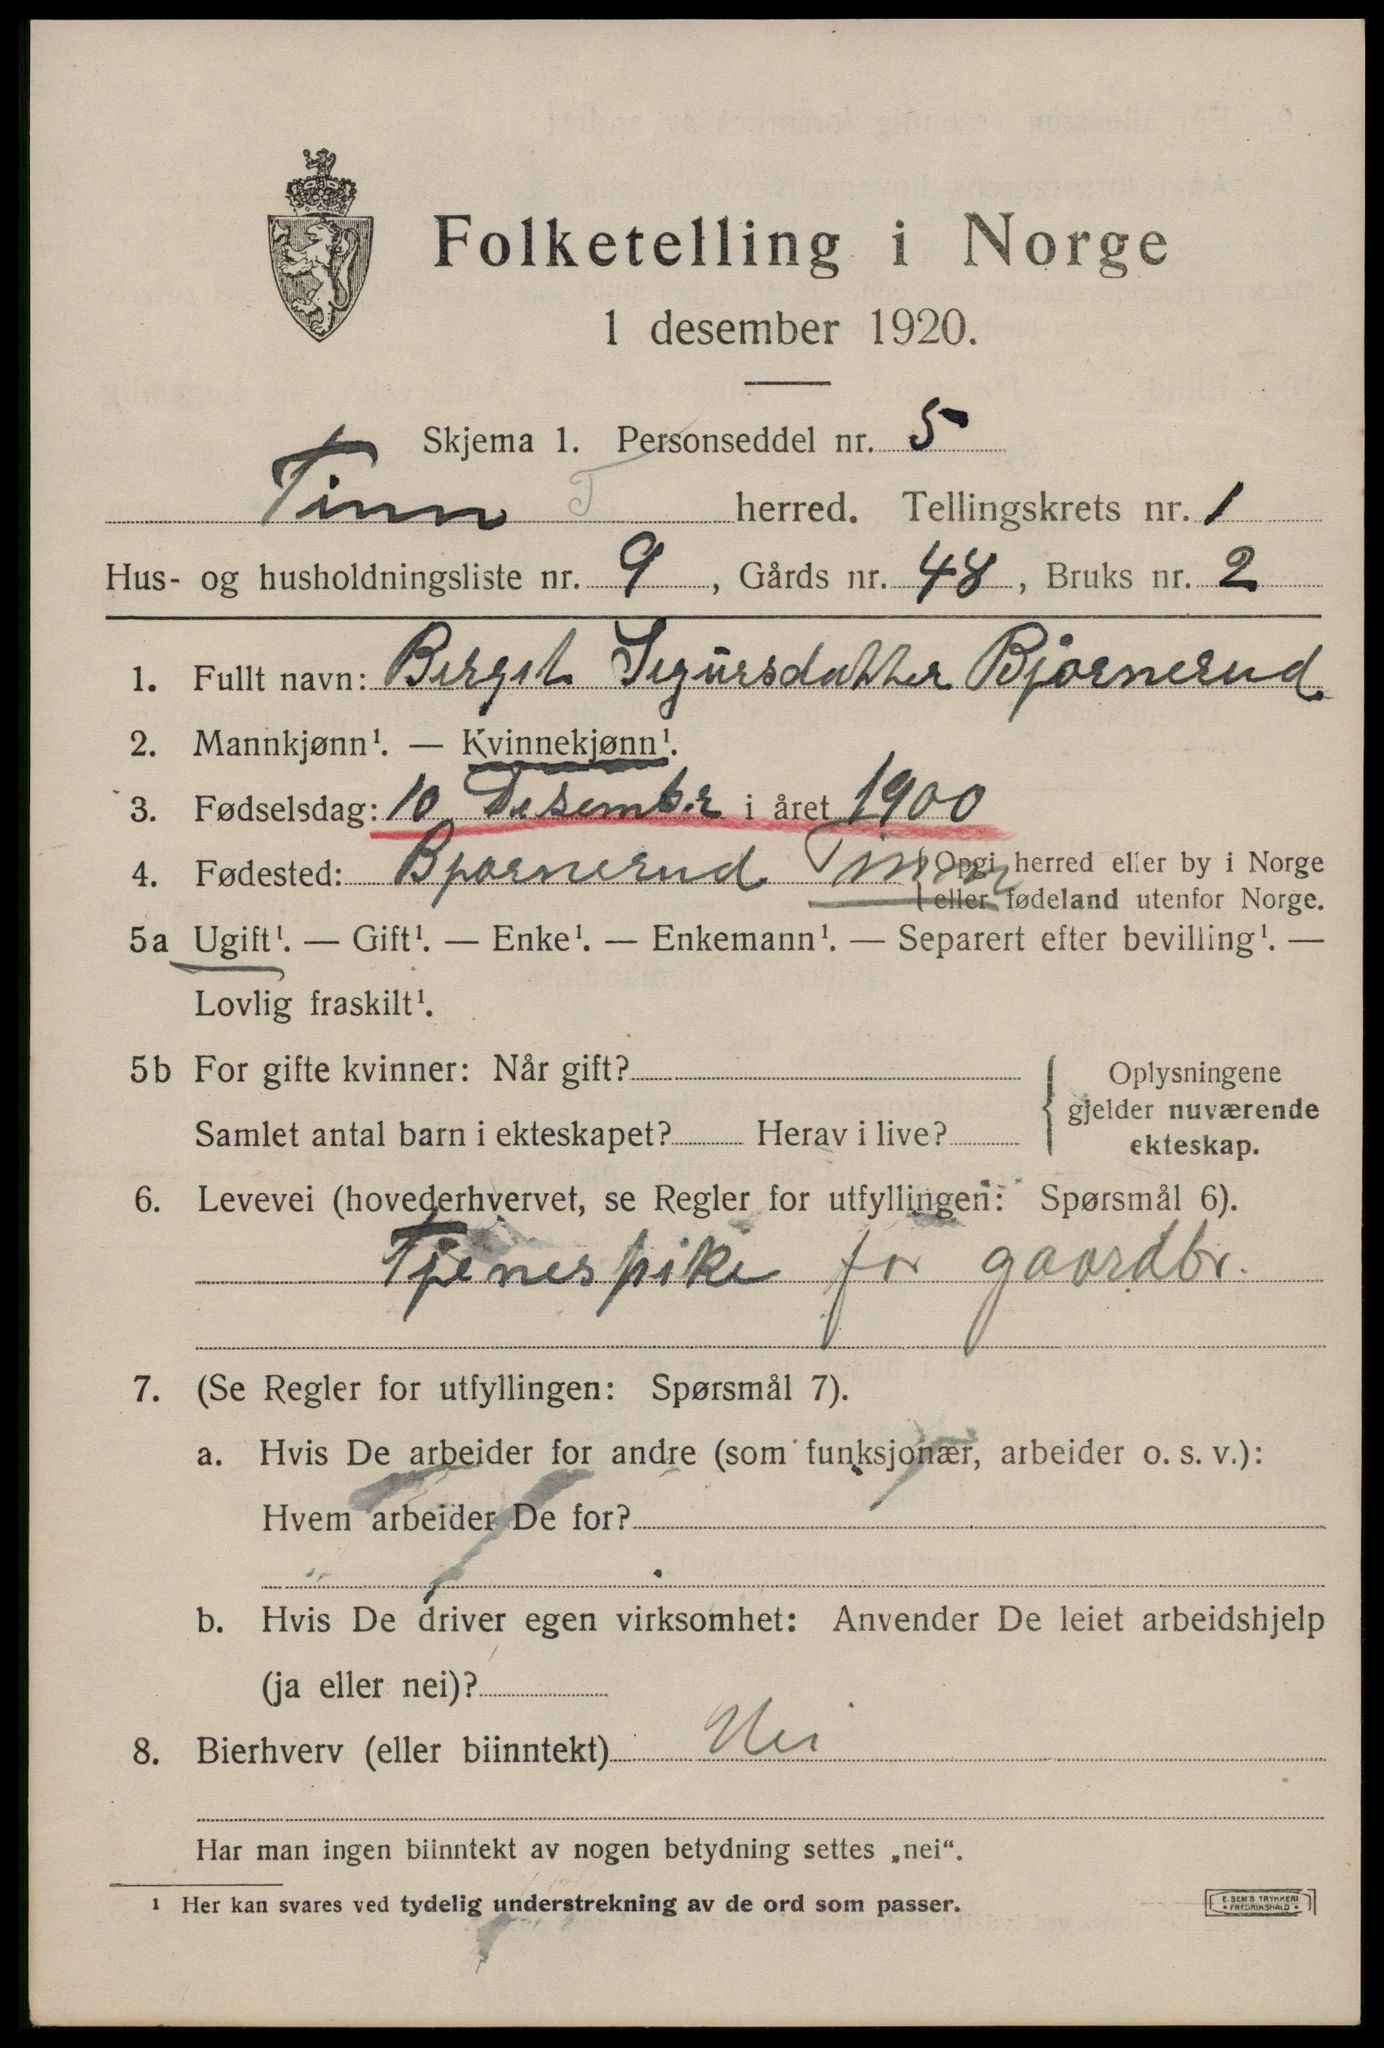 Folketelling i Norge
1 desember 1920.
Skjema 1. Personseddel nr. 5
Tinn T herred. Tellingskrets nr. 1
Hus- og husholdningsliste nr. 9, Gårds nr. 48, Bruks nr. 2
1. Fullt navn: Bergit Segursdatter Bjørnerud
2. Mannkjønn¹. — Kvinnekjønn¹.
3. Fødselsdag: 10 Desember i året 1900
4. Fødested: Bjørnerud Tinn {Opgi herred eller by i Norge
eller fødeland utenfor Norge.
5a Ugift¹. — Gift¹. — Enke¹. — Enkemann¹. — Separert efter bevilling¹. —
Lovlig fraskilt¹.
5b For gifte kvinner: Når gift?
Samlet antal barn i ekteskapet? Herav i live?
{Oplysningene
gjelder nuværende
ekteskap.
6. Levevei (hovederhvervet, se Regler for utfyllingen: Spørsmål 6).
Tjenespike for gaardbr.
7. (Se Regler for utfyllingen: Spørsmål 7).
a. Hvis De arbeider for andre (som funksjonær, arbeider o. s. v.):
Hvem arbeider De for?
b. Hvis De driver egen virksomhet: Anvender De leiet arbeidshjelp
(ja eller nei)?
8. Bierhverv (eller biinntekt) Nei
Har man ingen biinntekt av nogen betydning settes „nei“.
¹ Her kan svares ved tydelig understrekning av de ord som passer.
E. SEM'S TRYKKERI
* FREDRIKSHALD *